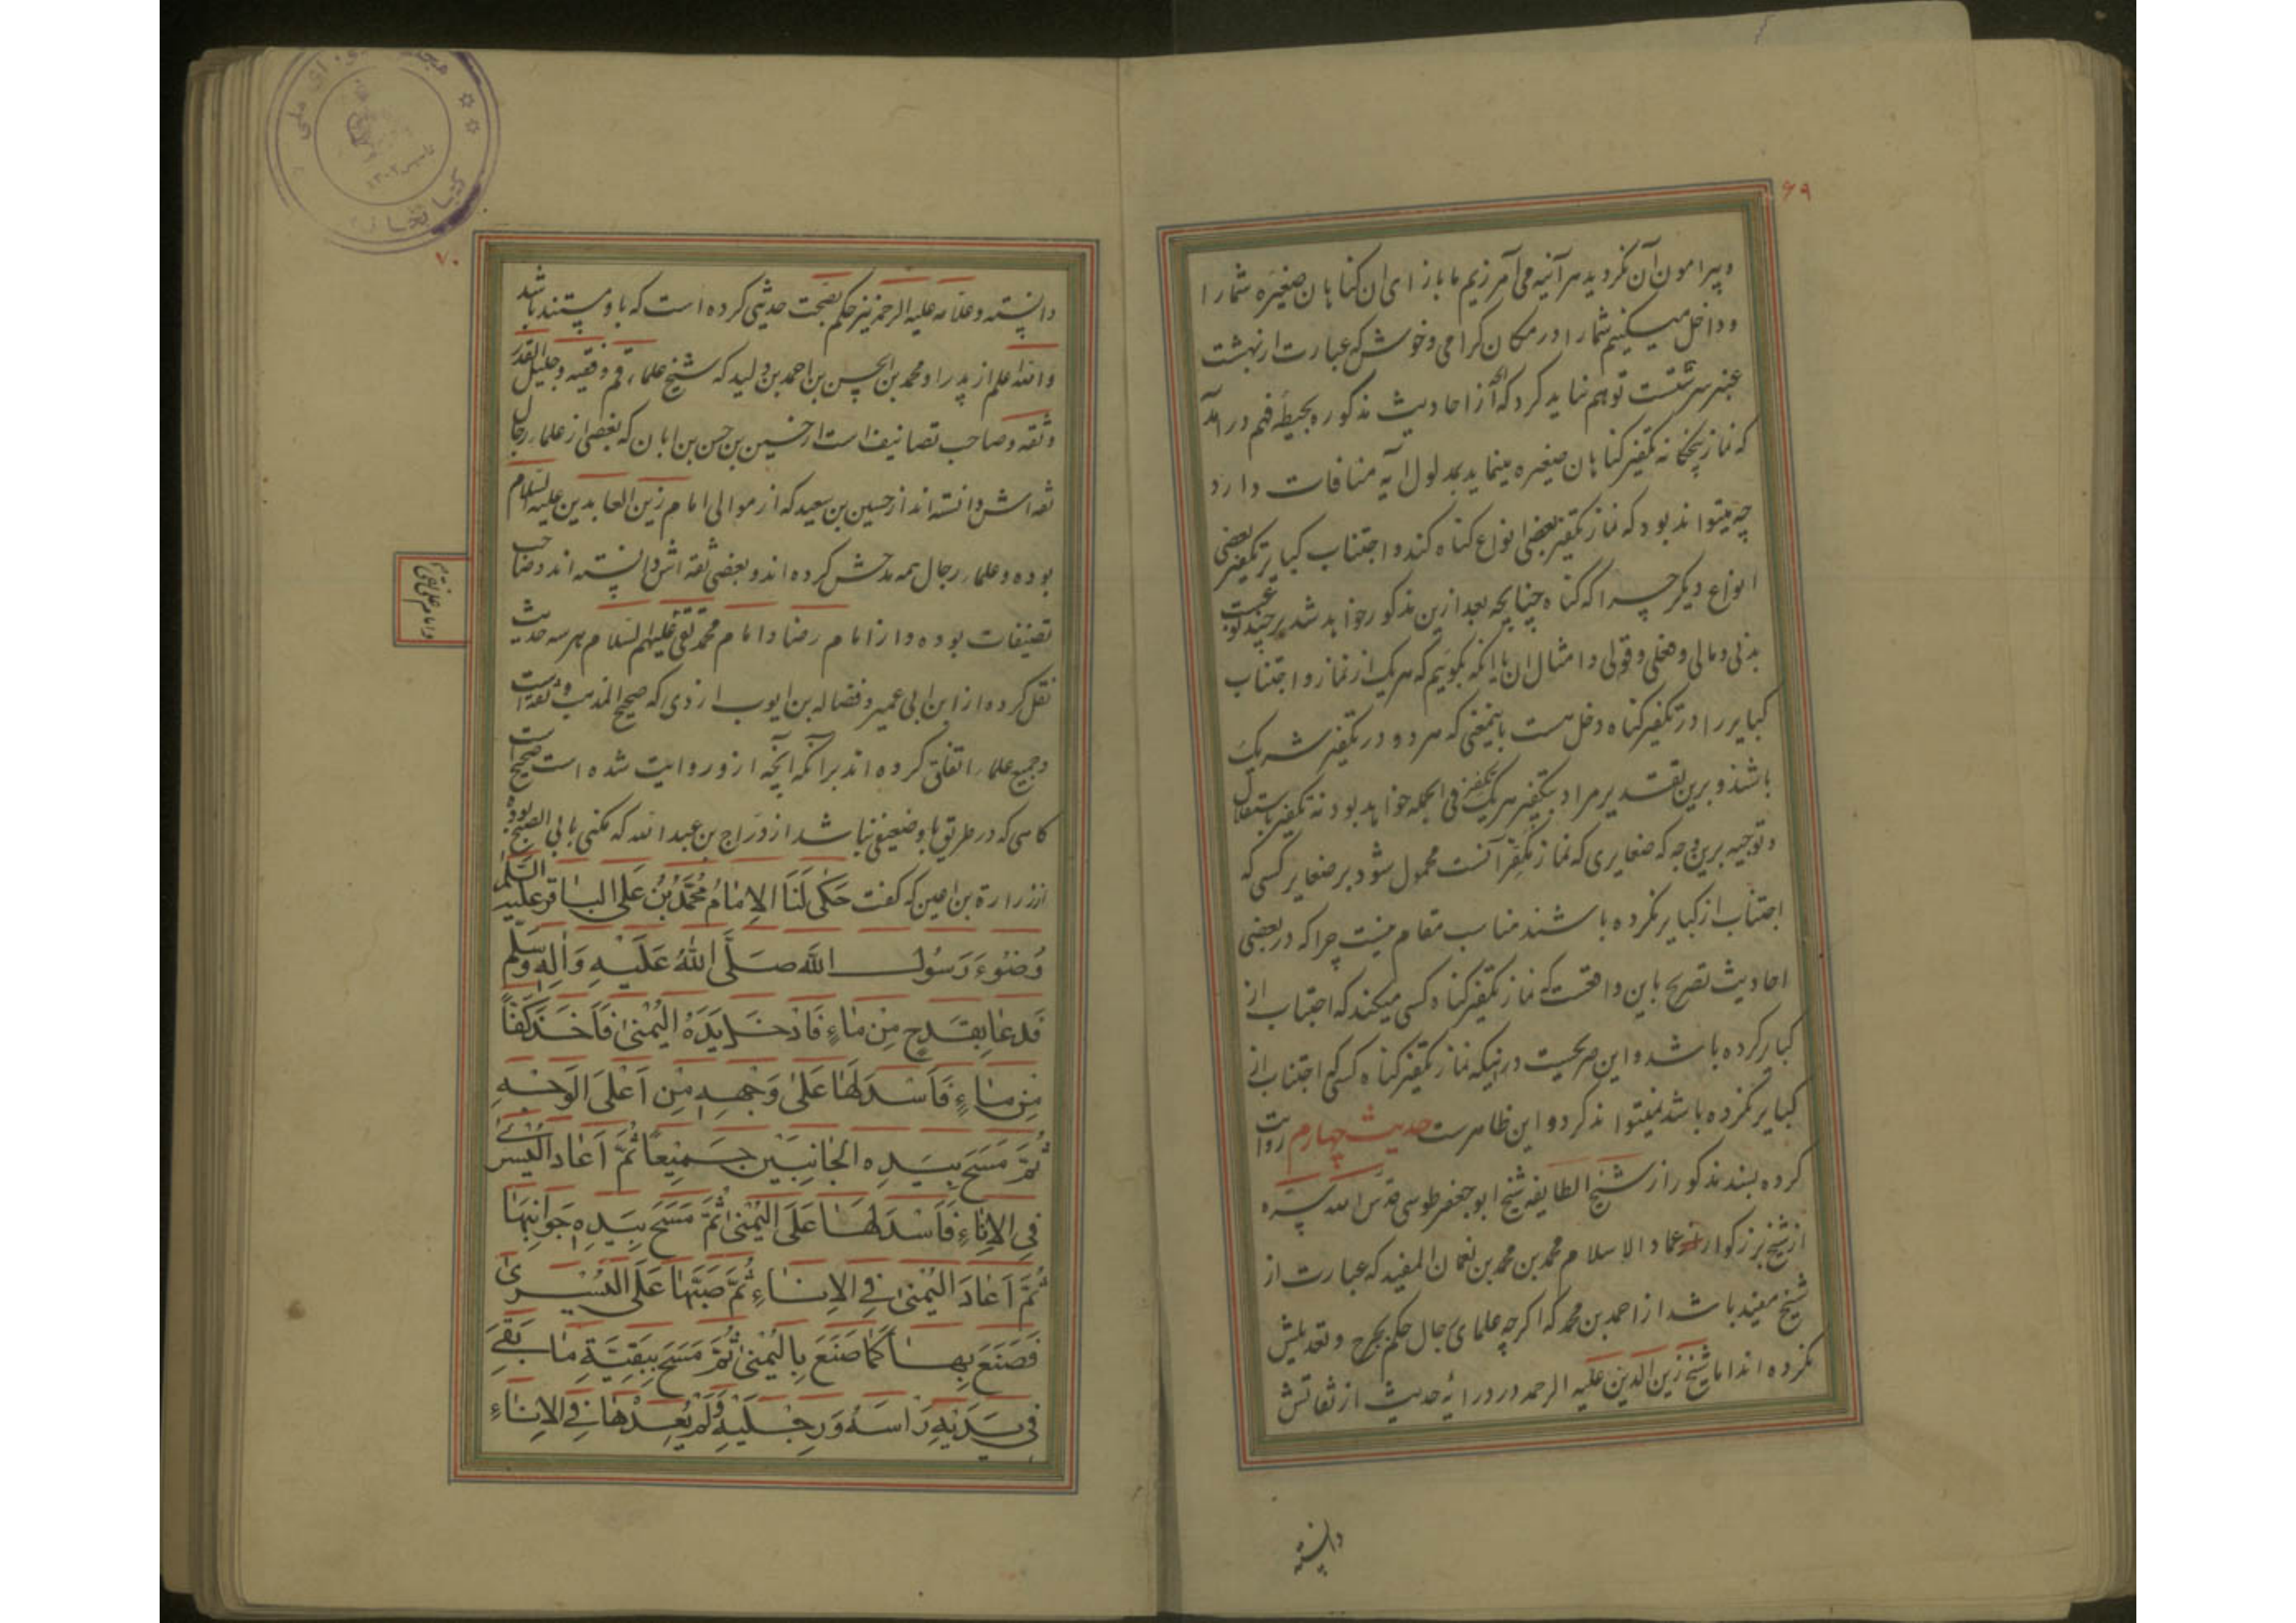 ۶۹
و پیرامون آن نگردید هر آینه می آمرزیم ما بازای ان کناهان صغیره شما را
و داخل میکنیم شما را در مکان کرامی و خوش که عبارت از بهشت
عنبر سرشتست توهم نباید کرد که آنچه از احادیث مذکوره بحیطه فهم در آمد
که نماز پنجکانه تکفیر کناهان صغیره مینماید بمدلول آیه منافات دارد
چه میتواند بود که نماز تکفیر بعضی انواع کناه کند و اجتناب کبایر تکفیر بعضی
انواع دیکر چرا که کناه چنانچه بعد ازین مذکور خواهد شد بر چند نوعست
بدنی و مالی و فعلی و قولی و امثال ان یا انکه بکوییم که هر یک از نماز و اجتناب
کبایر را در تکفیر کناه دخل هست باینمعنی که هر دو در تکفیر شریک
باشند و برین تقدیر مراد بتکفیر هر یک تکفیر فی الجمله خواهد بود نه تکفیر باستقلال
و توجیه برین وجه که صغایری که نماز مکفر آنست محمول شود بر صغایر کسی که
اجتناب از کبایر نکرده باشند مناسب مقام نیست چرا که در بعضی
احادیث تصریح باین واقعست که نماز تکفیر کناه کسی میکند که اجتناب از
کبایر کرده باشد و این صریحست در اینکه نماز تکفیر کناه کسی که اجتناب از
کبایر نکرده باشد نمیتواند کرد و این ظاهرست حدیث چهارم روایت
کرده بسند مذکور از شیخ الطایفه شیخ ابو جعفر طوسی قدس الله سره
از شیخ بزرکوار عماد الاسلام محمد بن محمد بن نعمان المفید که عبارت از
شیخ مفید باشد از احمد بن محمد که اکرچه علمای رجال حکم بجرح و تعدیلش
نکرده اند اما شیخ زین الدین علیه الرحمه در درایه حدیث از ثقاتش
دانسته
۷۰
دانسته و علامه علیه الرحمه نیز حکم بصحت حدیثی کرده است که باو مستند باشد
والله اعلم از پدر او محمد بن الحسن بن احمد بن ولید که شیخ علماء قم و فقیه و جلیل القدر
و ثقه و صاحب تصانیف است از حسین بن حسن بن ابان که بعضی از علماء رجال
ثقه اش دانسته اند از حسین بن سعید که از موالی امام زین العابدین علیه السلام
بوده و علماء رجال همه مدحش کرده اند و بعضی ثقه اش دانسته اند و صاحب
تصنیفات بوده و از امام رضا و امام محمد تقی علیهم السلام هر سه حدیث
و امام علی نقی
نقل کرده از ابن ابی عمیر و فضاله بن ایوب ازدی که صحیح المذهب و ثقه است
و جمیع علماء اتفاق کرده اند بر آنکه آنچه ازو روایت شده است صحیح است
کاهی که در طریق باو ضعیفی نباشد از دراج بن عبد الله که مکنی بابی الصبیح بوده
از زرارة بن اعین که کفت حَكٰى لَنَا الاِمٰامُ مُحَمَّدُ بْنُ عَلی البٰاقر علیه السّلٰم
وُضُوءَ رَسُول اللّٰه صَلَّى اللّٰهُ عَلَيْهِ وَاٰلِهِ وَسَلَّم
فَدعٰا بِقَدَحٍ مِنْ مٰاءٍ فَاَدْخَلَ يَدَهُ الیُمْنىٰ فَاَخَذَ كَفّاً
مِنْ مٰاءٍ فَاَسْدَلَهٰا عَلىٰ وَجْهِهِ مِنْ اَعْلَى الْوَجْهِ
ثُمَّ مَسَحَ بِيَدِهِ الجٰانِبَيْنِ جَمِيْعاً ثُمَّ اَعٰادَ الیُسْرىٰ
فِي الاِنٰاءِ فَاَسْدَلَهٰا عَلَى الیُمْنىٰ ثُمَّ مَسَحَ بِيَدِهِ جَوٰانِبَهٰا
ثُمَّ اَعٰادَ الیُمْنىٰ فِي الاِنٰاءِ ثُمَّ صَبَّهٰا عَلَى الیُسْرىٰ
فَصَنَعَ بِهٰا كَمٰا صَنَعَ بِالیُمْنىٰ ثُمَّ مَسَحَ بِبَقِيَّةِ مٰا بَقِيَ
فِي يَدَيْهِ رَاْسَهُ وَرِجْلَيْهِ وَلَمْ يُعِدْهٰا فِي الاِنٰاءِ